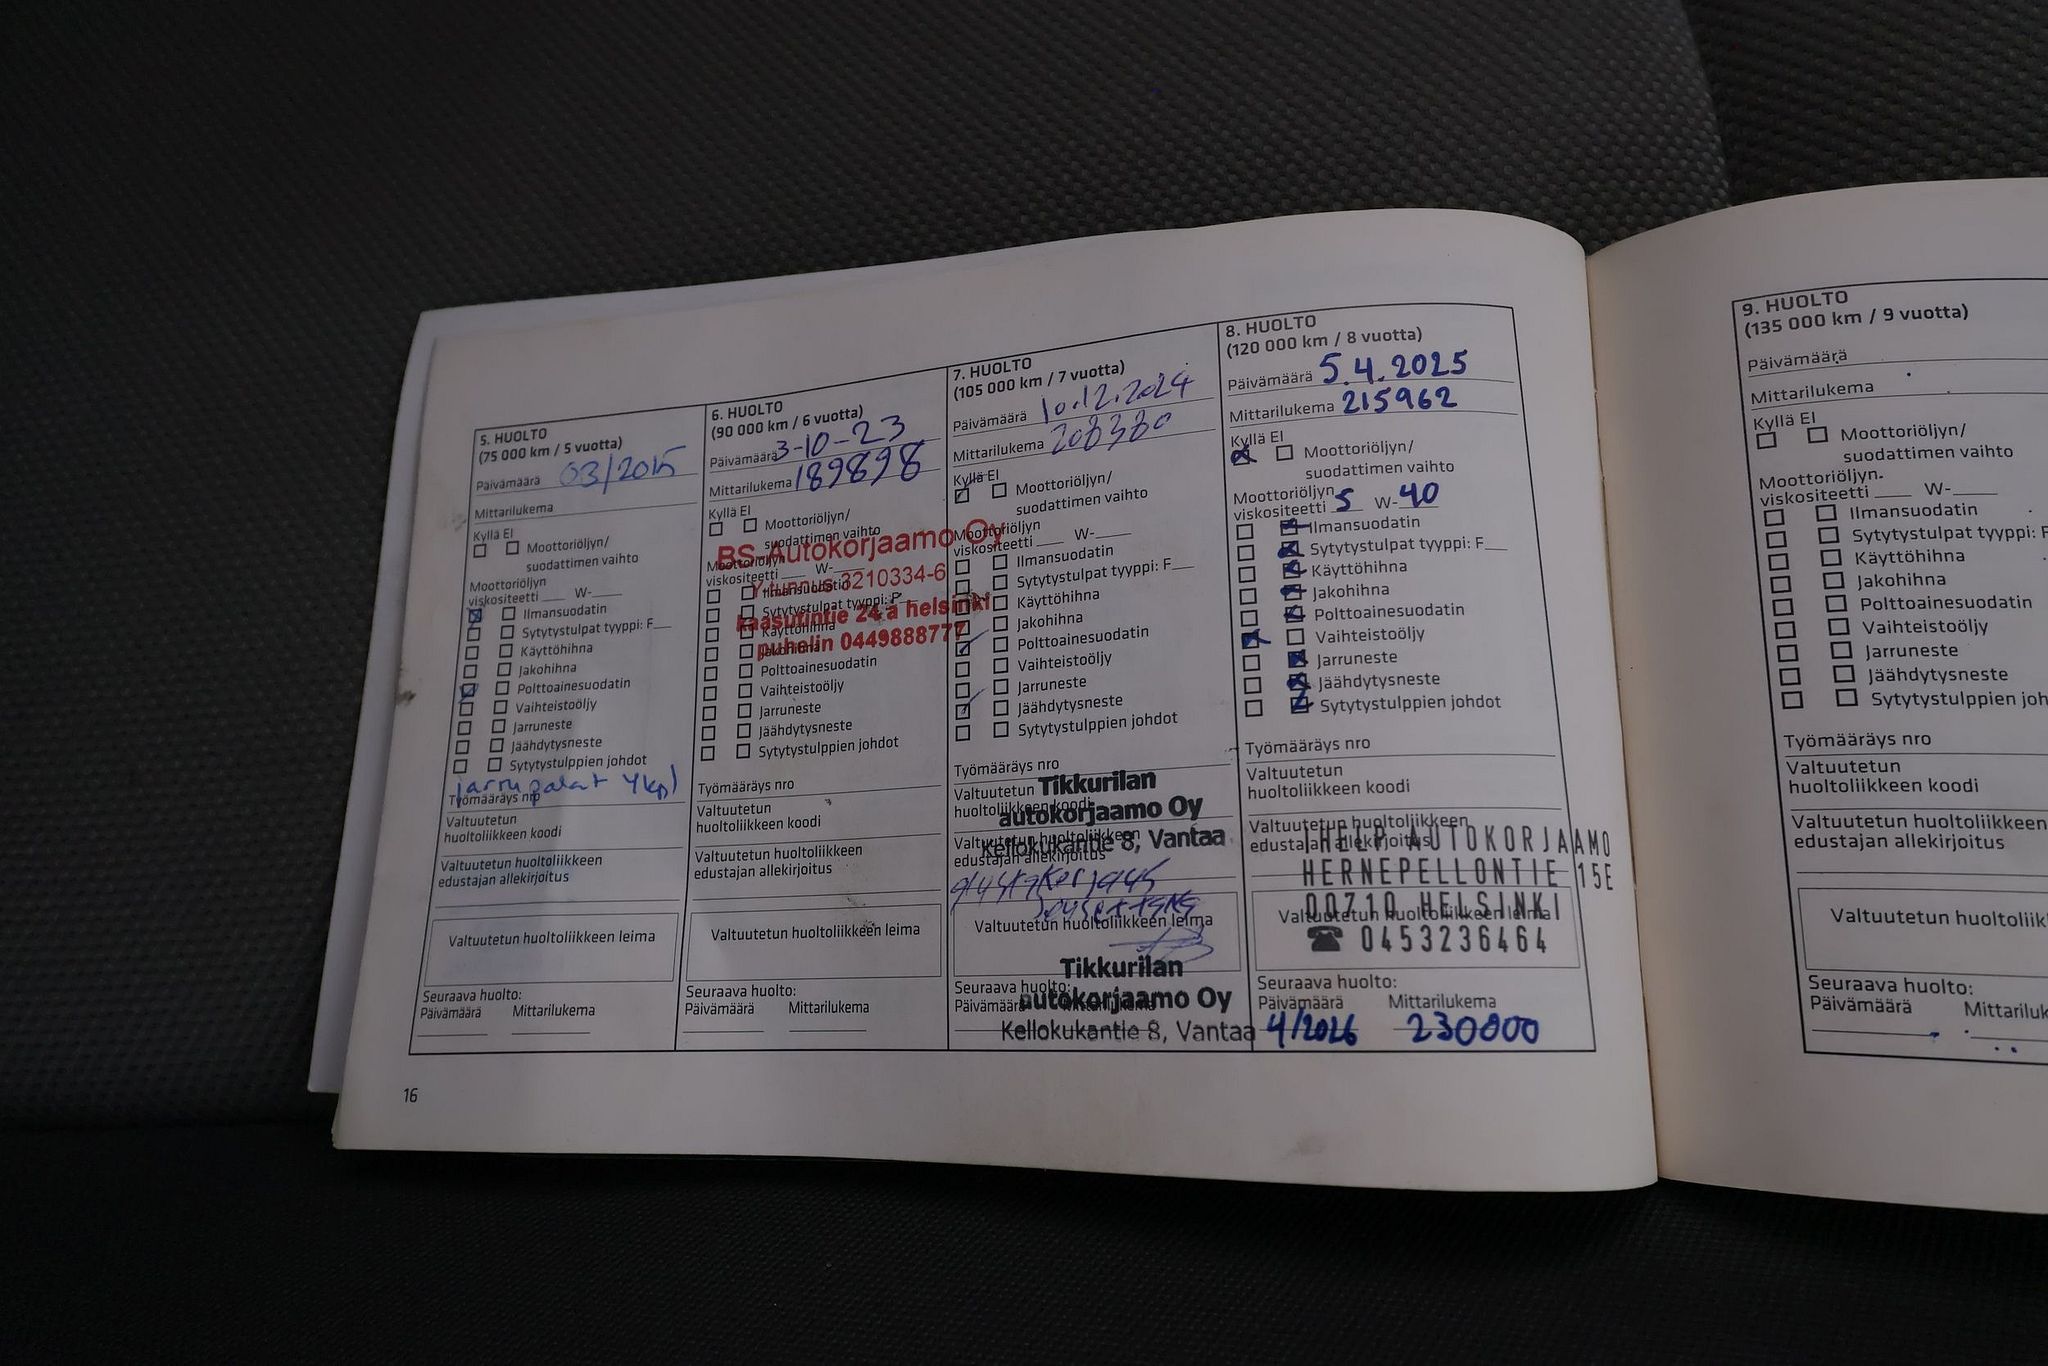 5. HUOLTO
(75 000 km / 5 vuotta)
Päivämäärä 03/2015
Mittarilukema
Kyllä EI
Moottoriöljyn/
suodattimen vaihto
Moottoriöljyn
viskositeetti ___ W-___
Ilmansuodatin
Sytytystulpat tyyppi: F__
Käyttöhihna
Jakohihna
Polttoainesuodatin
Vaihteistoöljy
Jarruneste
Jäähdytysneste
Sytytystulppien johdot
jarrupalat 4kpl
Työmääräys nro
Valtuutetun
huoltoliikkeen koodi
Valtuutetun huoltoliikkeen
edustajan allekirjoitus
Valtuutetun huoltoliikkeen leima
Seuraava huolto:
Päivämäärä Mittarilukema
6. HUOLTO
(90 000 km / 6 vuotta)
Päivämäärä 3-10-23
Mittarilukema 189898
Kyllä EI
Moottoriöljyn/
suodattimen vaihto
BS-Autokorjaamo Oy
Moottoriöljyn
viskositeetti ___ W-___
Y-tunnus 3210334-6
Ilmansuodatin
Sytytystulpat tyyppi: F
kaasutintie 24 a helsinki
Käyttöhihna
puhelin 0449888777
Jakohihna
Polttoainesuodatin
Vaihteistoöljy
Jarruneste
Jäähdytysneste
Sytytystulppien johdot
Työmääräys nro
Valtuutetun
huoltoliikkeen koodi
Valtuutetun huoltoliikkeen
edustajan allekirjoitus
Valtuutetun huoltoliikkeen leima
Seuraava huolto:
Päivämäärä Mittarilukema
7. HUOLTO
(105 000 km / 7 vuotta)
Päivämäärä 10.12.2024
Mittarilukema 208380
Kyllä EI
Moottoriöljyn/
suodattimen vaihto
Moottoriöljyn
viskositeetti ___ W-___
Ilmansuodatin
Sytytystulpat tyyppi: F__
Käyttöhihna
Jakohihna
Polttoainesuodatin
Vaihteistoöljy
Jarruneste
Jäähdytysneste
Sytytystulppien johdot
Työmääräys nro
Tikkurilan
Valtuutetun
huoltoliikkeen koodi
autokorjaamo Oy
Valtuutetun huoltoliikkeen
Kellokukantie 8, Vantaa
edustajan allekirjoitus
Valtuutetun huoltoliikkeen leima
Tikkurilan
Seuraava huolto:
autokorjaamo Oy
Päivämäärä Mittarilukema
Kellokukantie 8, Vantaa
8. HUOLTO
(120 000 km / 8 vuotta)
Päivämäärä 5.4.2025
Mittarilukema 215962
Kyllä EI
Moottoriöljyn/
suodattimen vaihto
Moottoriöljyn
viskositeetti 5 W-40
Ilmansuodatin
Sytytystulpat tyyppi: F__
Käyttöhihna
Jakohihna
Polttoainesuodatin
Vaihteistoöljy
Jarruneste
Jäähdytysneste
Sytytystulppien johdot
Työmääräys nro
Valtuutetun
huoltoliikkeen koodi
Valtuutetun huoltoliikkeen
edustajan allekirjoitus
HELP AUTOKORJAAMO
HERNEPELLONTIE 15E
00710 HELSINKI
Valtuutetun huoltoliikkeen leima
☎ 0453236464
Seuraava huolto:
Päivämäärä Mittarilukema
4/2026 230000
16
9. HUOLTO
(135 000 km / 9 vuotta)
Päivämäärä
Mittarilukema
Kyllä EI
Moottoriöljyn/
suodattimen vaihto
Moottoriöljyn
viskositeetti ___ W-___
Ilmansuodatin
Sytytystulpat tyyppi: F
Käyttöhihna
Jakohihna
Polttoainesuodatin
Vaihteistoöljy
Jarruneste
Jäähdytysneste
Sytytystulppien joh
Työmääräys nro
Valtuutetun
huoltoliikkeen koodi
Valtuutetun huoltoliikkeen
edustajan allekirjoitus
Valtuutetun huoltoliik
Seuraava huolto:
Päivämäärä Mittariluk